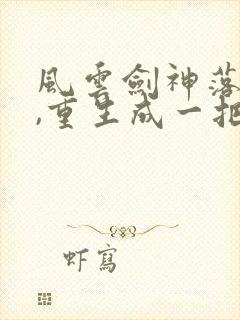 風雲劍神落
,重生成一把
虾寫